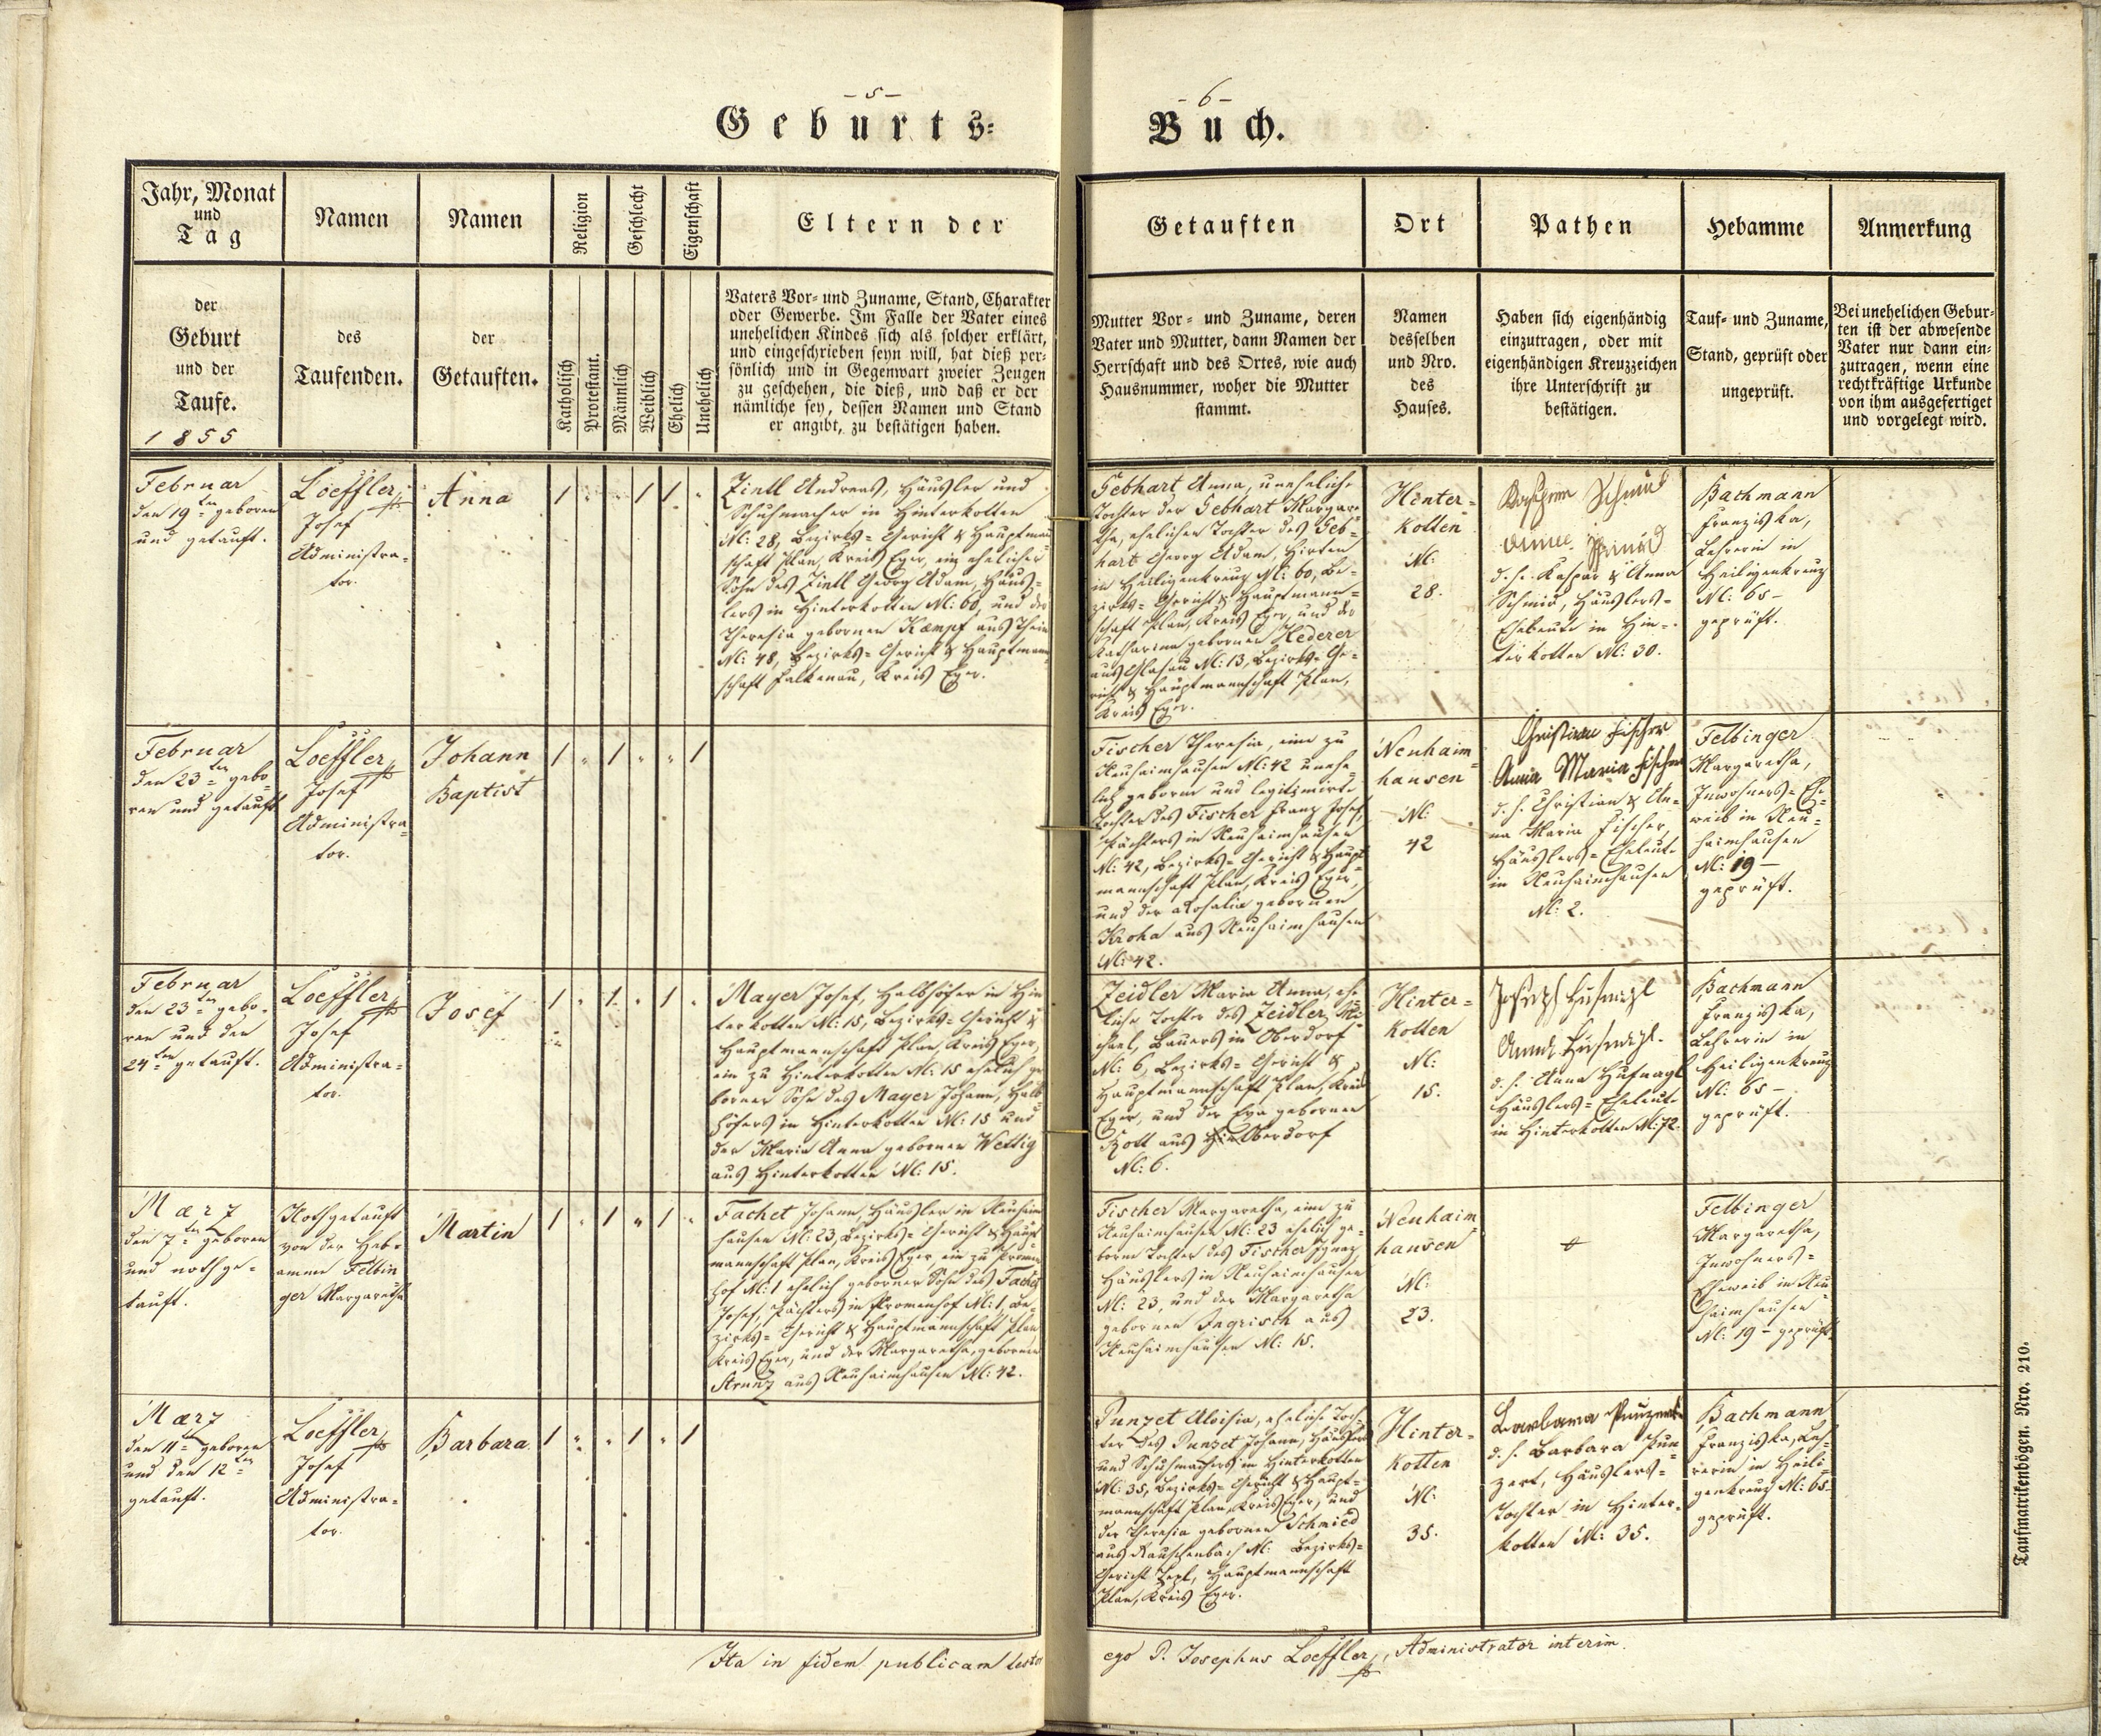 - 5 -
Geburts=
Jahr, Monat
und
Tag
Namen
Namen
Religion
Geschlecht
Eigenschaft
Eltern der
der
Geburt
und der
Taufe.
1855
des
Taufenden.
der
Getauften.
Katholisch
Protestant.
Männlich
Weiblich
Ehelich
Unehelich
Vaters Vor- und Zuname, Stand, Charakter
oder Gewerbe. Im Falle der Vater eines
unehelichen Kindes sich als solcher erklärt,
und eingeschrieben seyn will, hat dieß per=
sönlich und in Gegenwart zweier Zeugen
zu geschehen, die dieß, und daß er der
nämliche sey, dessen Namen und Stand
er angibt, zu bestätigen haben.
Februar
den 19ten geboren
und getauft.
Loeffler
Josef
Administra=
tor.
Anna
1 " " 1 1 "
Zintl Andreas, Häusler und
Schuhmacher in Hinterkotten
N: 28, Bezirks=Gericht & Hauptman
schaft Plan, Kreis Eger, ein ehelicher
Sohn des Zintl Georg Adam, Häus=
lers in Hinterkotten N: 60, und der
Theresia gebornen Kæmpf aus
N: 48, Bezirks=Gericht & Hauptmann
schaft Falkenau, Kreis Eger.
Februar
den 23ten gebo
ren und getauft
Loeffler
Josef
Administra=
tor.
Johann
Baptist
1 " 1 " " 1
Februar
den 23ten gebo=
ren und den
24ten getauft.
Loeffler
Josef
Administra=
tor.
Josef
1 " 1 " 1 "
Mayer Josef, Halbhöfer in Hin
terkotten N: 15, Bezirks=Gericht &
Hauptmannschaft Plan, Kreis Eger,
ein zu Hinterkotten N: 15 ehelich ge
borner Sohn des Mayer Johann, Halb
höfers in Hinterkotten N: 15 und
der Maria Anna gebornen Wettig
aus Hinterkotten N: 15.
Mærz
den 7ten geboren
und nothge=
tauft.
Nothgetauft
von der Heb=
amme Felbin
ger Margaretha
Martin
1 " 1 " 1 "
Fachet Johann, Häusler in Neuhaim
hausen N: 23, Bezirks=Gericht & Haupt
mannschaft Plan, Kreis Eger, ein zu Promen
hof N: 1 ehelich geborner Sohn des Fachet
Josef, Pächters in Promenhof N: 1, Be=
zirks=Gericht & Hauptmannschaft Plan
Kreis Eger, und der Margaretha, gebornen
Strunz aus Neuhaimhausen N: 42.
Mærz
den 11ten geboren
und den 12ten
getauft.
Loeffler
Josef
Administra=
tor.
Barbara
1 " " 1 " 1
Ita in fidem publicam testor
- 6 -
Buch.
Getauften
Ort
Pathen
Hebamme
Anmerkung
Mutter Vor- und Zuname, deren
Vater und Mutter, dann Namen der
Herrschaft und des Ortes, wie auch
Hausnummer, woher die Mutter
stammt.
Namen
desselben
und Nro.
des
Hauses.
Haben sich eigenhändig
einzutragen, oder mit
eigenhändigen Kreuzzeichen
ihre Unterschrift zu
bestätigen.
Tauf- und Zuname,
Stand, geprüft oder
ungeprüft.
Bei unehelichen Gebur=
ten ist der abwesende
Vater nur dann ein=
zutragen, wenn eine
rechtkräftige Urkunde
von ihm ausgefertiget
und vorgelegt wird.
Gebhart Anna, uneheliche
Tochter der Gebhart Margare
tha, ehelichen Tochter des Geb=
hart Georg Adam, Hirten
in Heiligenkreuz N: 60, Be=
zirks=Gericht & Hauptmann=
schaft Plan, Kreis Eger, und der
Katharina gebornen Hederer
aus Glasau N: 13, Bezirks=Ge=
richt & Hauptmannschaft Plan,
Kreis Eger.
Hinter=
kotten
N:
28.
Schmid
Anna Schmid
d. h. Kaspar & Anna
Schmid, Häuslers=
Eheleute in Hin=
terkotten N: 30.
Bachmann
Franziska,
Lehrerin in
Heiligenkreuz
N: 65 -
geprüft.
Fischer Theresia, eine zu
Neuhaimhausen N: 42 unehe
lich geborne und legitimirte
Tochter des Fischer Franz Josef,
Pächters in Neuhaimhausen
N: 42, Bezirks=Gericht & Haupt
mannschaft Plan, Kreis Eger,
und der Rosalia gebornen
Kroha aus Neuhaimhausen
N: 42.
Neuhaim
hausen
N:
42
Christian Fischer
Anna Maria Fischer
d. h. Christian & An=
na Maria Fischer,
Häuslers=Eheleute
in Neuhaimhausen
N: 2.
Felbinger
Margaretha,
Inwohners=Ehe
weib in Neu=
haimhausen
N: 19 -
geprüft.
Zeidler Maria Anna, ehe
liche Tochter des Zeidler Mi
chael, Bauers in Oberdorf
N: 6, Bezirks=Gericht &
Hauptmannschaft Plan, Kreis
Eger, und der Eva gebornen
Rott aus Oberdorf
N: 6.
Hinter=
kotten
N:
15.
Joseph Hufnagl
Anna Hufnagl.
d. h. Anna Hufnagl
Häuslers=Eheleute
in Hinterkotten N: 72.
Bachmann
Franziska,
Lehrerin in
Heiligenkreuz
N: 65 -
geprüft.
Fischer Margaretha, eine zu
Neuhaimhausen N: 23 ehelich ge=
borne Tochter des Fischer Ignaz,
Häuslers in Neuhaimhausen
N: 23, und der Margaretha
gebornen Ingrisch aus
Neuhaimhausen N: 15.
Neuhaim
hausen
N:
23.
Felbinger
Margaretha,
Inwohners=
Eheweib in Neu
haimhausen
N: 19 - geprüft.
Punzet Aloisia, eheliche Toch=
ter des Punzet Johann, Häuslers
und Schuhmachers in Hinterkotten
N: 35, Bezirks=Gericht & Haupt=
mannschaft Plan, Kreis Eger, und
der Theresia gebornen Schmied
aus Rauschenbach N: Bezirks=
Gericht Tepl, Hauptmannschaft
Plan, Kreis Eger.
Hinter=
kotten
N:
35.
Barbara
d. h. Barbara Pun
zert, Häuslers=
Tochter in Hinter=
kotten N: 35.
Bachmann
Franziska, Leh=
rerin in Heili=
genkreuz N: 65
geprüft.
ego P. Josephus Loeffler, Administrator interim.
Taufmatrikenbögen. Nro. 210.